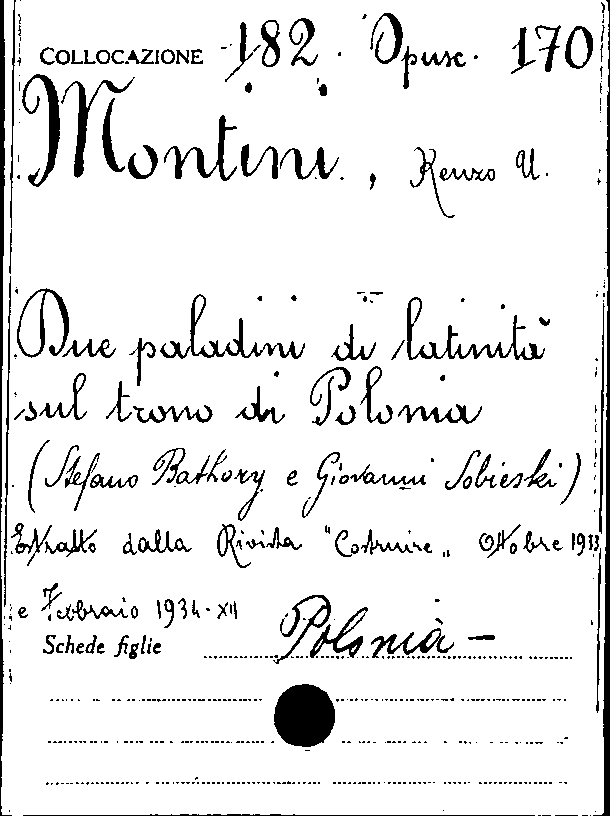 COLLOCAZIONE 182. Opusc. 170
Montini, Renzo U.
Due paladini di latinità
sul trono di Polonia
(Stefano Bathory e Giovanni Sobieski)
Estratto dalla Rivista "Costruire„ Ottobre 1933
e Febbraio 1934-XII
Schede figlie Polonia -